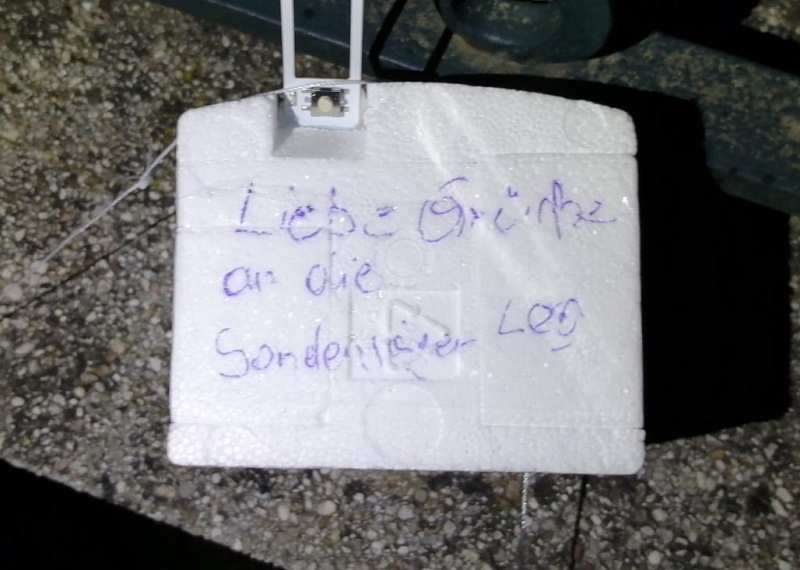 Liebe Grüße
an die
Sondenjäger Leo